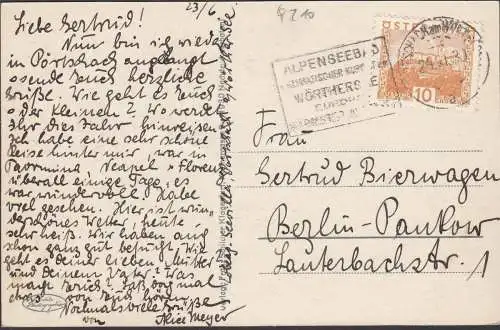 23/6
Liebe Gertrud!
Nun bin ich wieder
in Pörtschach angelangt
sende Euch herzliche
Grüße. Wie geht es Euch
der Kleinen? Wo werdet
Ihr dies Jahr hinreisen
Ich habe eine sehr schöne
Reise hinter mir, war in
Taormina, Neapel + Florenz
überall einige Tage, es
war wundervoll. Habe
viel gesehen. Hier ist wun-
derschönes Wetter, heute
sehr heiß. Wir haben auch
schon ganz gut besucht. Wie
geht es Deiner lieben Mutter
und Deinem Vater? Was
macht Erich? Laß doch mal
etwas von Euch hören
Nochmals viele Grüße
von Alice Meyer
ALPENSEEBAD
WÖRTHERSEE
ÖSTERREICH
10
Frau
Gertrud Bierwagen
Berlin-Pankow
Lauterbachstr. 1